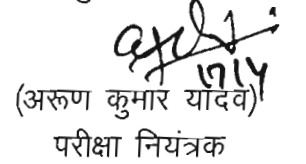 17/4
(अरूण कुमार यादव)
परीक्षा नियंत्रक